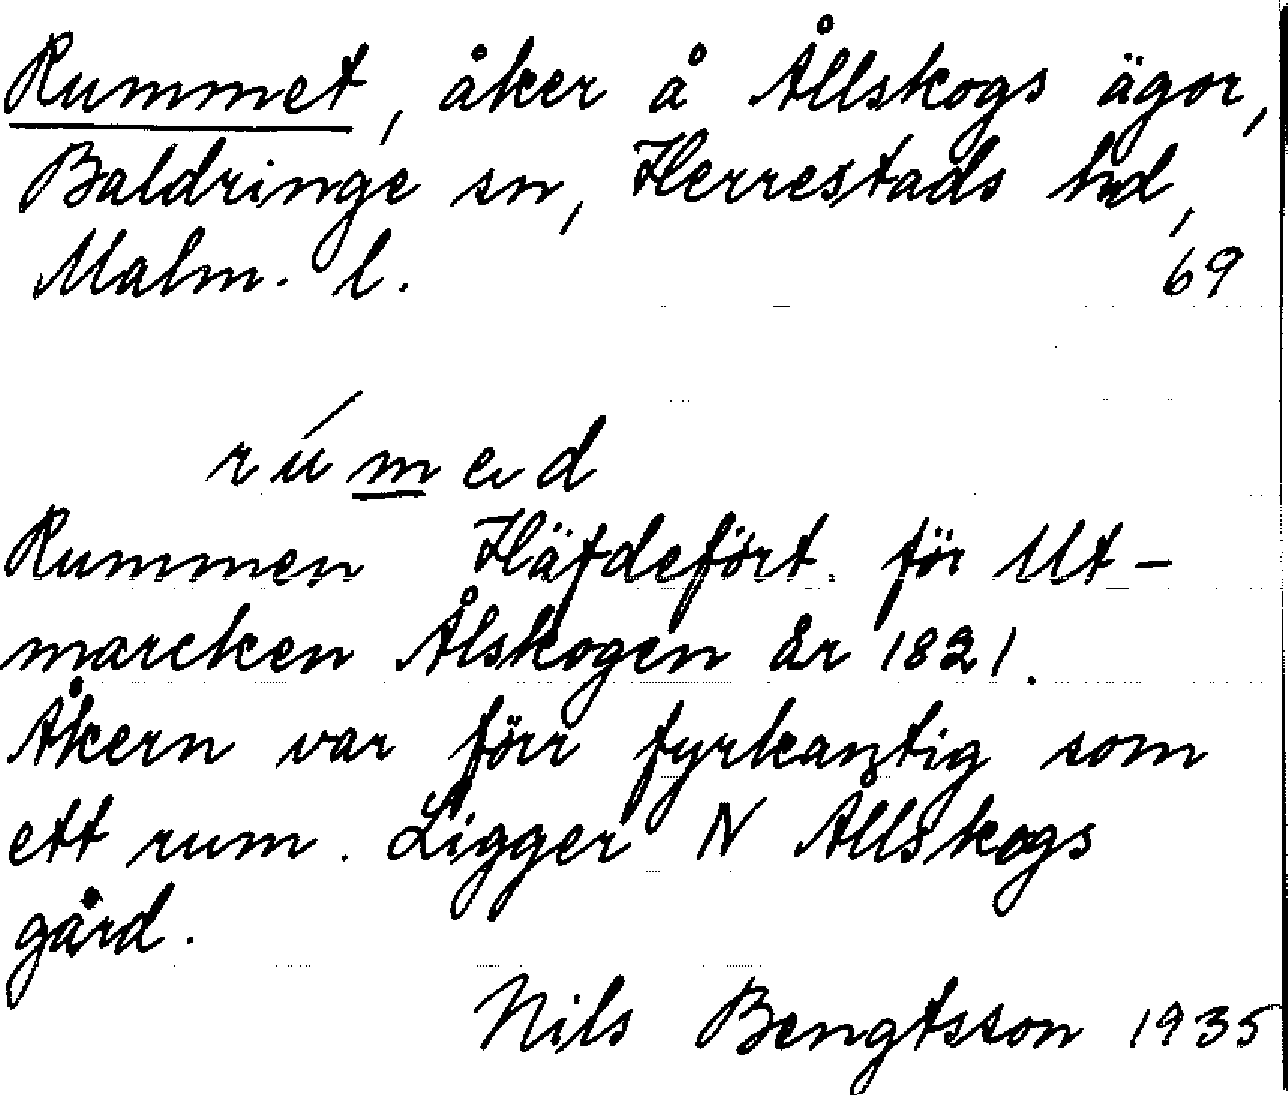 Rummet, åker å Ållskogs ägor,
Baldringe sn, Herrestads hd,
Malm. l. 69
rúmed
Rummen Häfdefört. för Ut-
marcken Ålskogen år 1821.
Åkern var förr fyrkantig som
ett rum. Ligger N Ållskogs
gård.
Nils Bengtsson 1935